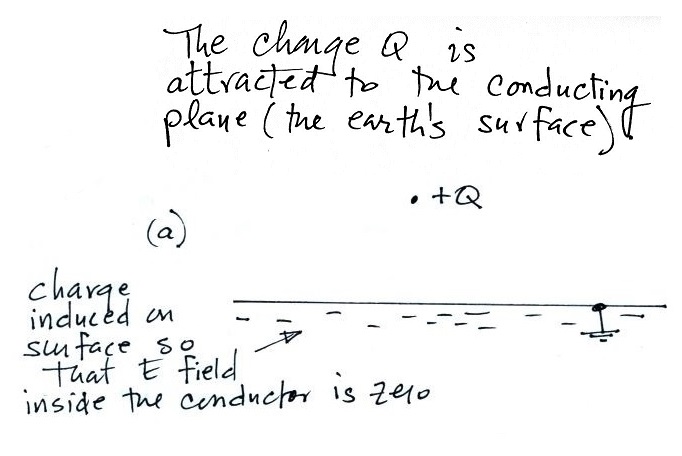 The charge Q is
attracted to the conducting
plane (the earth's surface).
• +Q
(a)
charge
induced on
surface so
that E field
inside the conductor is zero